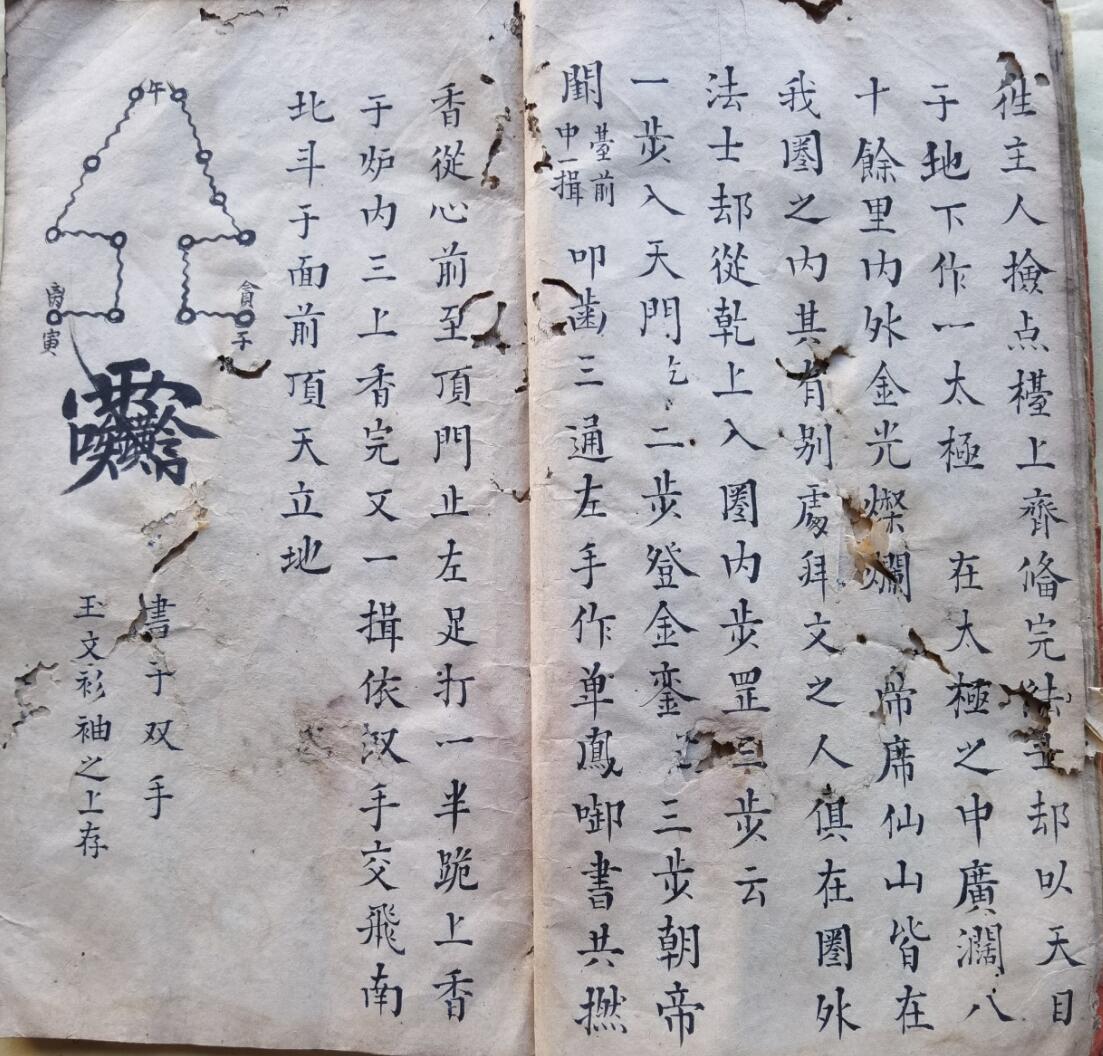 徃主人撿点檯上齊俻完法士却以天目
于地下作一太極 在太極之中廣濶八
十餘里内外金光燦爛 帝席仙山皆在
我圈之内其有别處拜文之人俱在圈外
法士却從乾上入圈内步罡三步云
一步入天門乞二步登金銮 三步朝帝
闕 臺前
申一揖
叩齒三通左手作单鳳啣書共撚
香從心前至頂門止左足打一半跪上香
于炉内三上香完又一揖依汉手交飛南
北斗于面前頂天立地
午
貪
子
寅
書于双手
玉文衫袖之上存